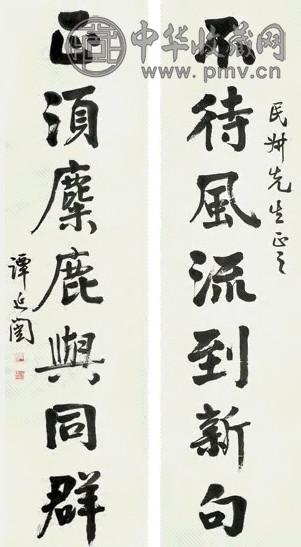 中华收藏网
www.pmv.cn
民先生正之
不待風流到新句
正須麋鹿與同群
譚延闓